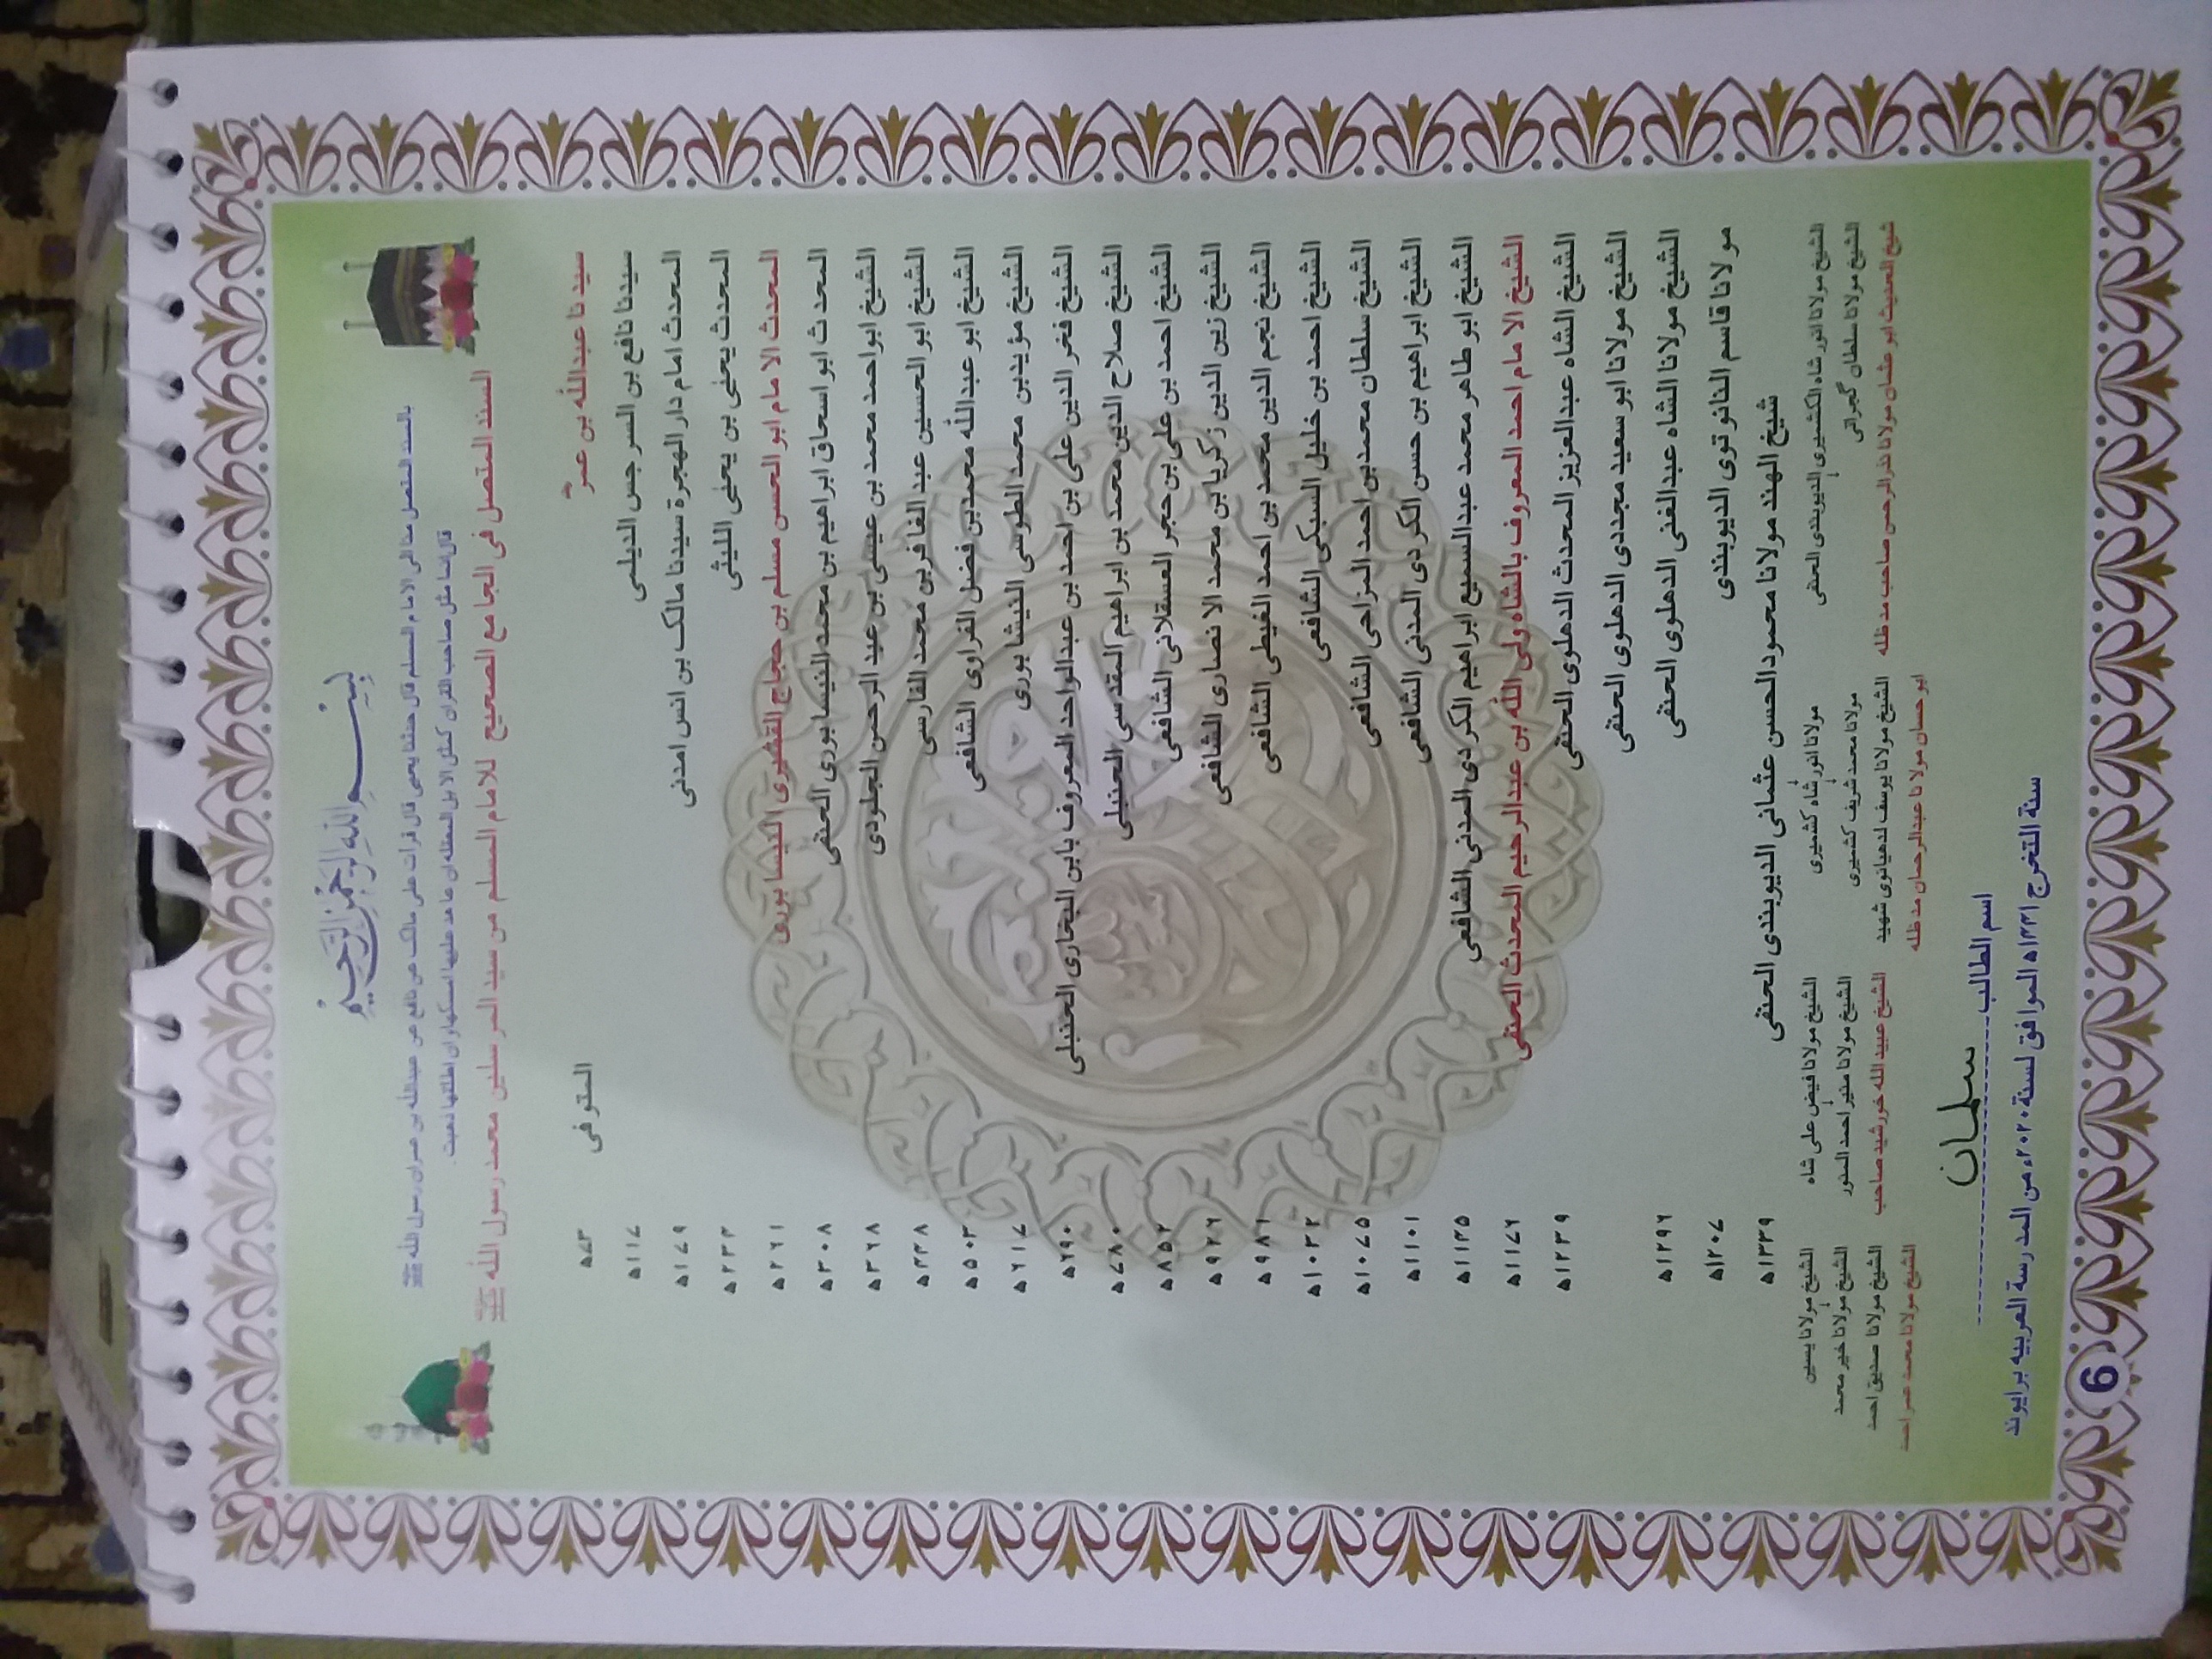 بسم الله الرحمن الرحيم
بالسند المتصل منا الى الامام المسلم قال حدثنا يحيى قال قرات على مالك عن نافع عن عبدالله بن عمر ان رسول الله ﷺ
قال انما مثل صاحب القران كمثل الابل المعقله ان عاهد عليها امسكها و ان اطلقها ذهبت
السند المتصل فى الجامع الصحيح للامام المسلم من سيد المرسلين محمد رسول الله ﷺ
المتوفى
سيدنا عبدالله بن عمرؓ ۷۳ھ
سيدنا نافع بن السرجس الديلمى ۱۱۷ھ
المحدث امام دار الهجرة سيدنا مالک بن انس امدنى ۱۷۹ھ
المحدث يحيٰى بن يحيٰى الليثى ۲۳۳ھ
المحدث الامام ابو الحسن مسلم بن حجاج القشيرى النيسابورى ۲۶۱ھ
المحدث ابو اسحاق ابراهيم بن محمد النيسابورى الحنفى ۳۰۸ھ
الشيخ ابو احمد محمد بن عيسى بن عبد الرحمن الجلودى ۳۶۸ھ
الشيخ ابو الحسين عبد الغافر بن محمد الفارسى ۴۴۸ھ
الشيخ ابو عبدالله محمد بن فضل الفراوى الشافعى ۵۰۳ھ
الشيخ مؤيد بن محمد الطوسى النيشابورى ۶۱۷ھ
الشيخ فخر الدين على بن احمد بن عبدالواحد المعروف بابن البخارى الحنبلى ۶۹۰ھ
الشيخ صلاح الدين محمد بن ابراهيم المقدسى الحنبلى ۷۸۰ھ
الشيخ احمد بن على بن حجر العسقلانى الشافعى ۸۵۲ھ
الشيخ زين الدين زكريا بن محمد الانصارى الشافعى ۹۲۶ھ
الشيخ نجم الدين محمد بن احمد الغيطى الشافعى ۹۸۱ھ
الشيخ احمد بن خليل السبكى الشافعى ۱۰۳۲ھ
الشيخ سلطان محمد بن احمد المزاحى الشافعى ۱۰۷۵ھ
الشيخ ابراهيم بن حسن الكردى المدنى الشافعى ۱۱۰۱ھ
الشيخ ابو طاهر محمد عبد السميع ابراهيم الكردى المدنى الشافعى ۱۱۴۵ھ
الشيخ الامام احمد المعروف بالشاه ولى الله بن عبدالرحيم المحدث الحنفى ۱۱۷۶ھ
الشيخ الشاه عبدالعزيز المحدث الدهلوى الحنفى ۱۲۳۹ھ
الشيخ مولانا ابو سعيد مجددى الدهلوى الحنفى
الشيخ مولانا الشاه عبدالغنى الدهلوى الحنفى ۱۲۹۶ھ
مولانا قاسم النانوتوى الديوبندى ۱۲۰۷ھ
شيخ الهند مولانا محمود الحسن عثمانى الديوبندى الحنفى ۱۳۳۹ھ
الشيخ مولانا انور شاه الكشميرى الديوبندى الحنفى مولانا انور شاه كشميرى الشيخ مولانا فيض على شاه الشيخ مولانا يسين
الشيخ مولانا سلطان گجراتى مولانا محمد شريف كشميرى الشيخ مولانا منير احمد المنور الشيخ مولانا خير محمد
شيخ الحديث ابو عثمان مولانا نذرالرحمن صاحب مدظله الشيخ مولانا يوسف لدهيانوى شهيد الشيخ عبيد الله خورشيد صاحب الشيخ مولانا صديق احمد
ابو حسان مولانا عبدالرحمان مدظله الشيخ مولانا محمد عمر احمد
اسم الطالب سلمان
سنة التخرج ۱۴۴۱ھ الموافق لسنة ۲۰۲۰ء من المدرسة العربيه برايوند
6